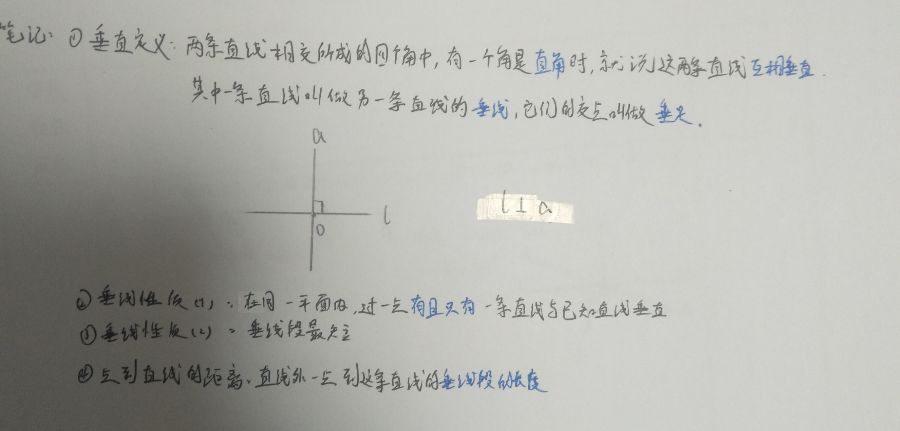 笔记: ① 垂直定义: 两条直线相交所成的四个角中, 有一个角是直角时, 就说这两条直线互相垂直.
其中一条直线叫做另一条直线的垂线, 它们的交点叫做垂足.
a
l
O
l⊥a
② 垂线性质(1): 在同一平面内, 过一点有且只有一条直线与已知直线垂直
③ 垂线性质(2): 垂线段最短
④ 点到直线的距离: 直线外一点到这条直线的垂线段的长度